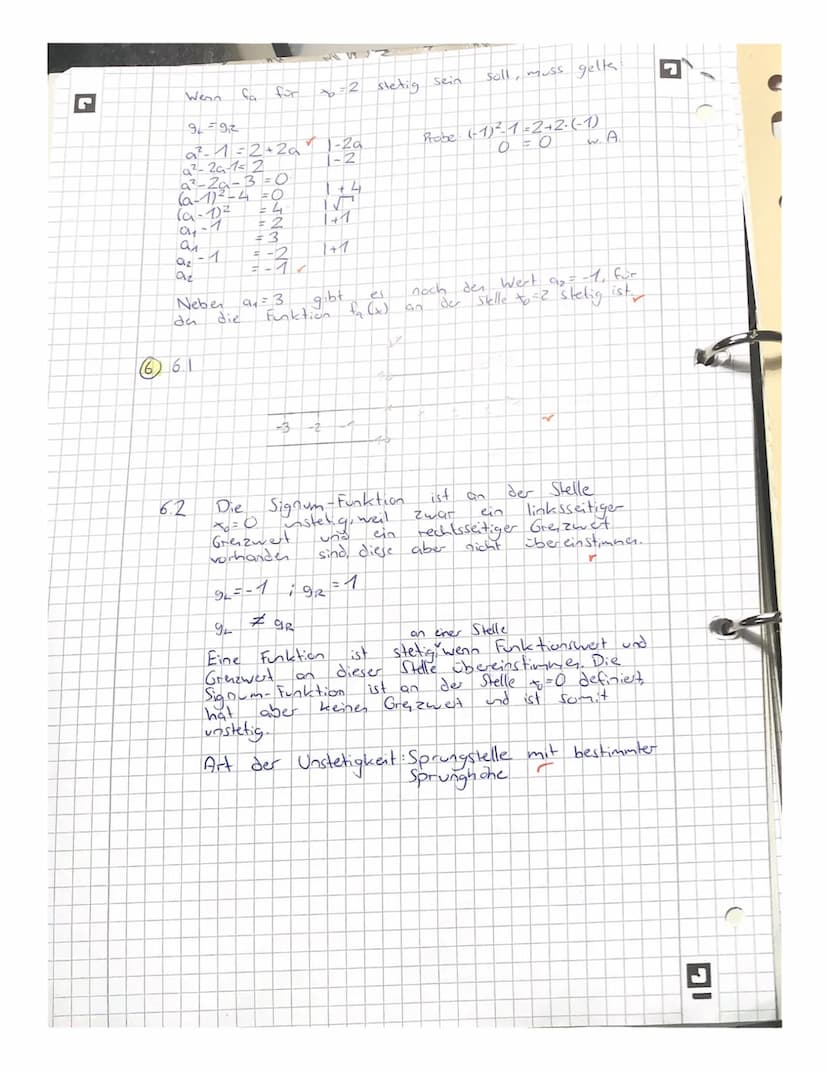 Wenn fa für x₀=2 stetig sein soll, muss gelten
gL = gR
a²-1 = 2+2a |-2a
a²-2a-1 = 2 |-2
a²-2a-3 = 0
(a-1)²-4 = 0 |+4
(a-1)² = 4 |√
a₁-1 = 2 |+1
a₁ = 3
a₂-1 = -2 |+1
a₂ = -1
Probe: (-1)²-1 = 2+2·(-1)
0 = 0 w.A
Neben a₁=3 gibt es noch den Wert a₂=-1, für
den die Funktion fa(x) an der Stelle x₀=2 stetig ist.
6 6.1
-3 -2 -1
6.2 Die Signum-Funktion ist an der Stelle
x₀=0 unstetig, weil zwar ein linksseitiger
Grenzwert und ein rechtsseitiger Grenzwert
vorhanden sind, diese aber nicht übereinstimmen.
gL=-1 ; gR=1
gL ≠ gR
an einer Stelle
Eine Funktion ist stetig, wenn Funktionswert und
Grenzwert an dieser Stelle übereinstimmen. Die
Signum-Funktion ist an der Stelle x₀=0 definiert,
hat aber keinen Grenzwert und ist somit
unstetig.
Art der Unstetigkeit: Sprungstelle mit bestimmter
Sprunghöhe